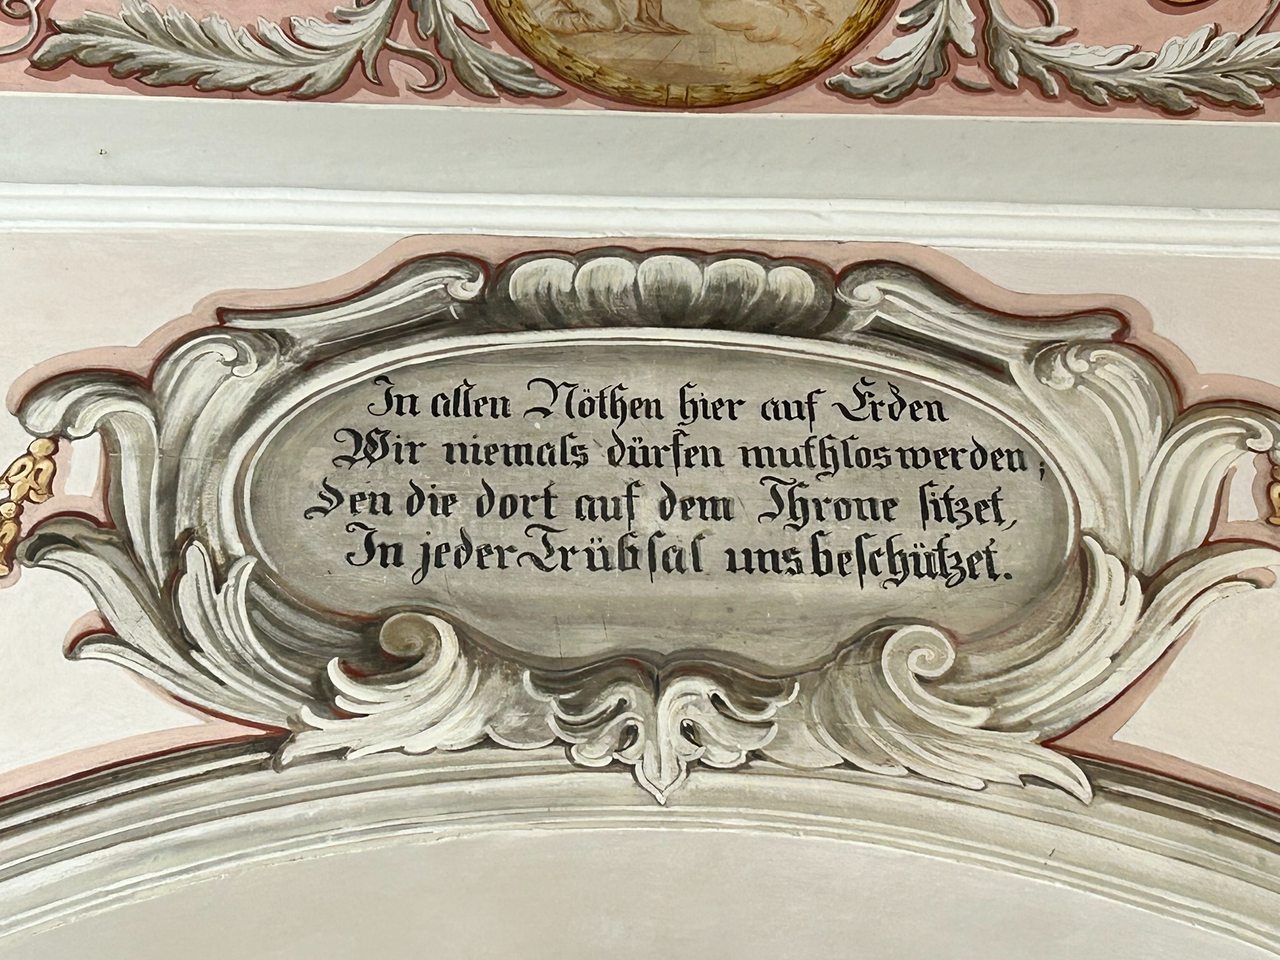 In allen Nöthen hier auf Erden
Wir niemals dürfen muthlos werden;
Sen die dort auf dem Throne sitzet,
In jeder Trübsal uns beschützet.